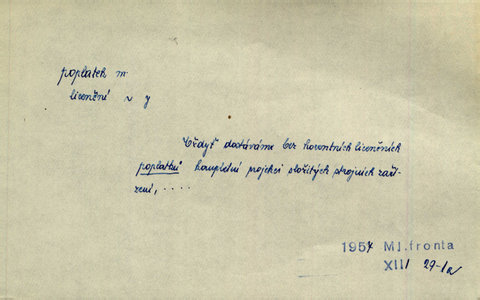 poplatek m.
licenční v j
Vždyť dostáváme bez horentních licenčních
poplatků kompletní projekci složitých strojních zaří-
zení, ....
1957 Ml.fronta
XII/ 27-1a